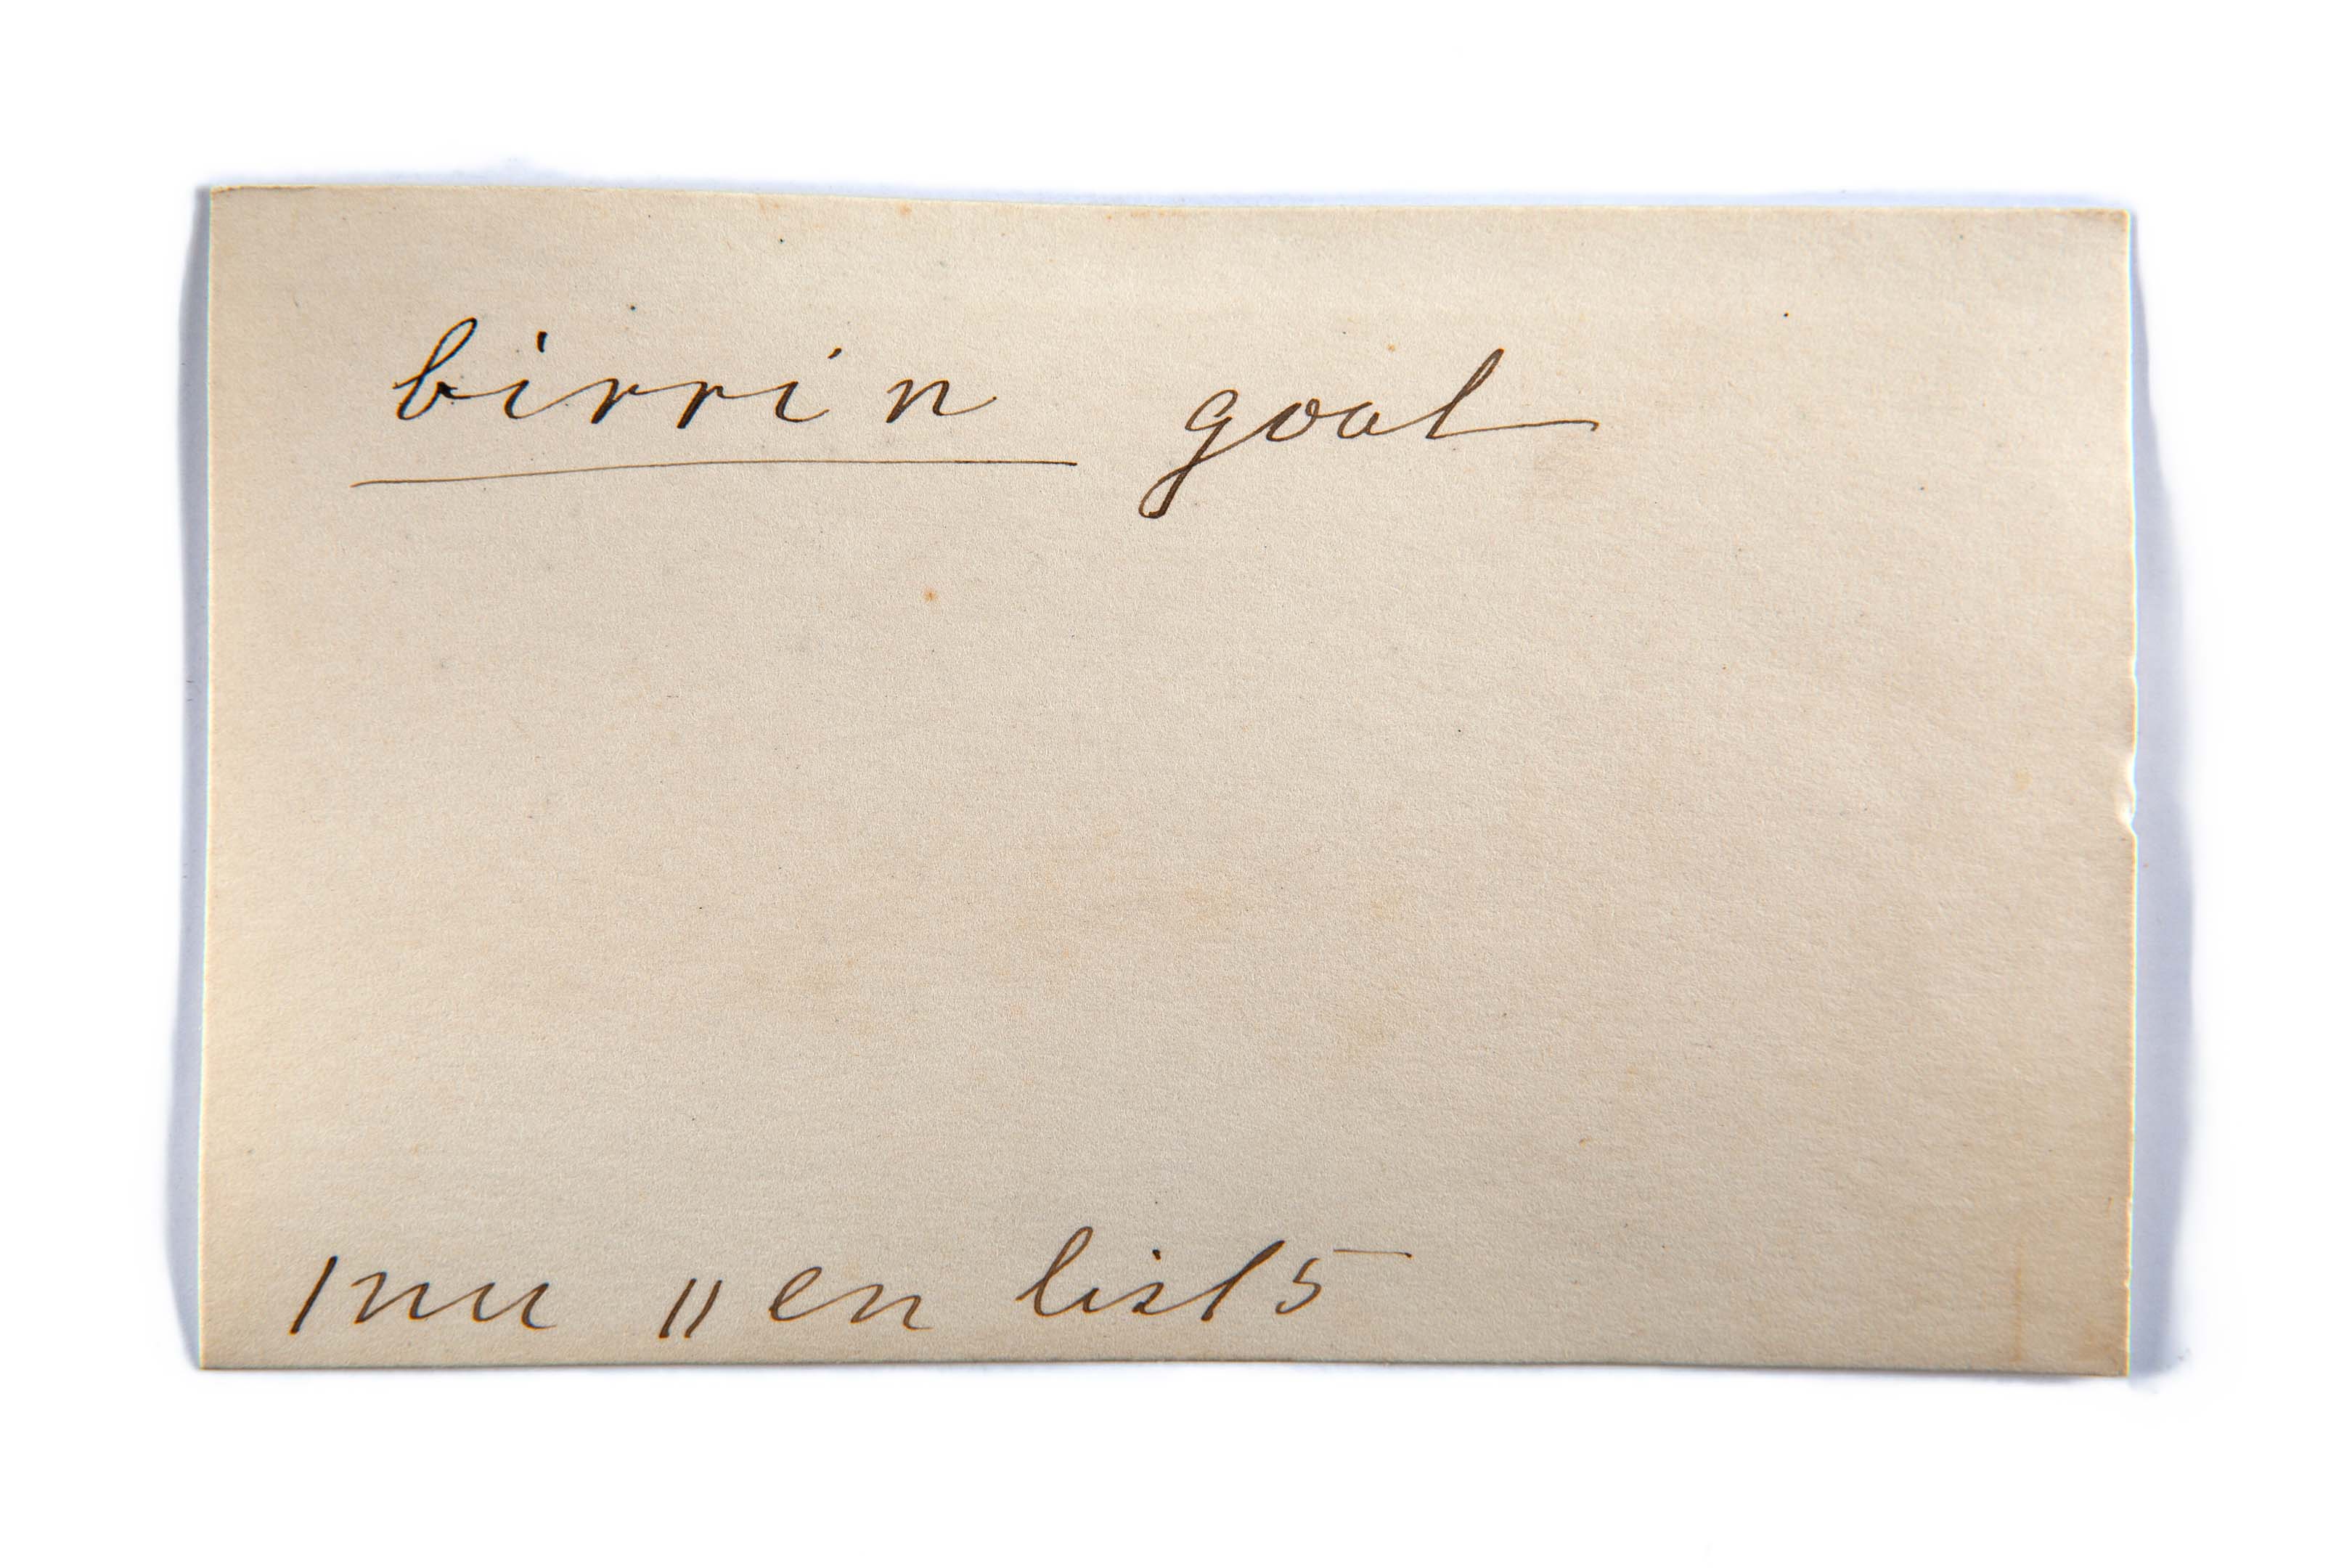 birrin goal
1 nu 11 en list 5